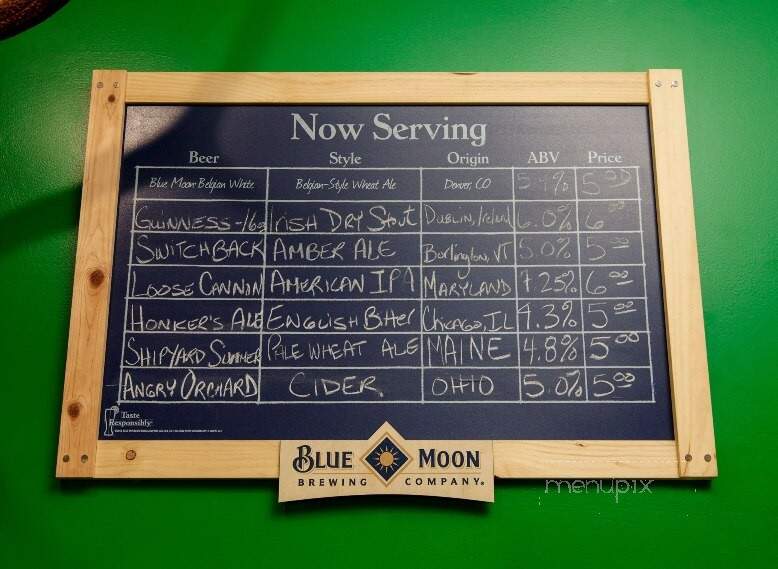 Now Serving
Beer Style Origin ABV Price
Blue Moon Belgian White Belgian-Style Wheat Ale Denver, CO 5.4% 5.00
GUINNESS-16oz IRISH DRY Stout DUBLIN, Ireland 6.0% 6.00
SWITCHBACK AMBER ALE Burlington, VT 5.0% 5.00
LOOSE CANNON AMERICAN IPA MARYLAND 7.25% 6.00
HONKER'S ALE ENGLISH Bitter CHICAGO, IL 4.3% 5.00
SHIPYARD SUMMER PALE WHEAT ALE MAINE 4.8% 5.00
ANGRY ORCHARD CIDER OHIO 5.0% 5.00
Taste
Responsibly
BLUE MOON
BREWING COMPANY
menupix